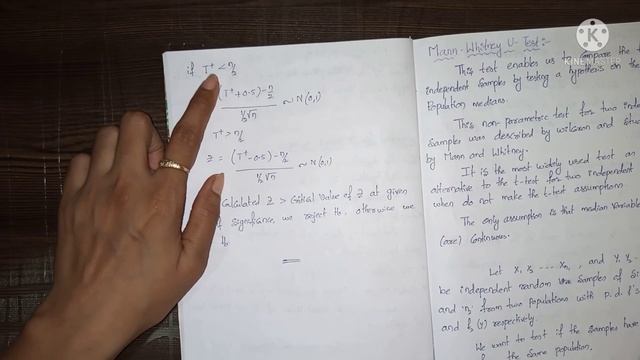 if T⁺ < n/2
(T⁺+0.5) - n/2
½√n
~ N(0,1)
T⁺ > n/2
Z = (T⁺-0.5) - n/2
½√n
~ N(0,1)
Calculated Z > Critical Value of Z at given
of significance, we reject H₀, otherwise we
H₀
Mann-Whitney U-Test:-
This test enables us to compare the t
independent Samples by testing a hypothesis on the
Population medians.
This non-parametric test for two inde
Samples was described by wilcoxon and stud
by Mann and Whitney.
It is the most widely used test an
alternative to the t-test for two independent
when do not make the t-test assumptions
The only assumption is that median Variable
(are) Continuous.
Let X₁ X₂ ..... and Y₁ Y₂
be independent random Samples of Si
and n₂ from two populations with p.d.f's
and f₂ (y) respectively.
We want to test if the Samples have
the same population.
KINEMASTER